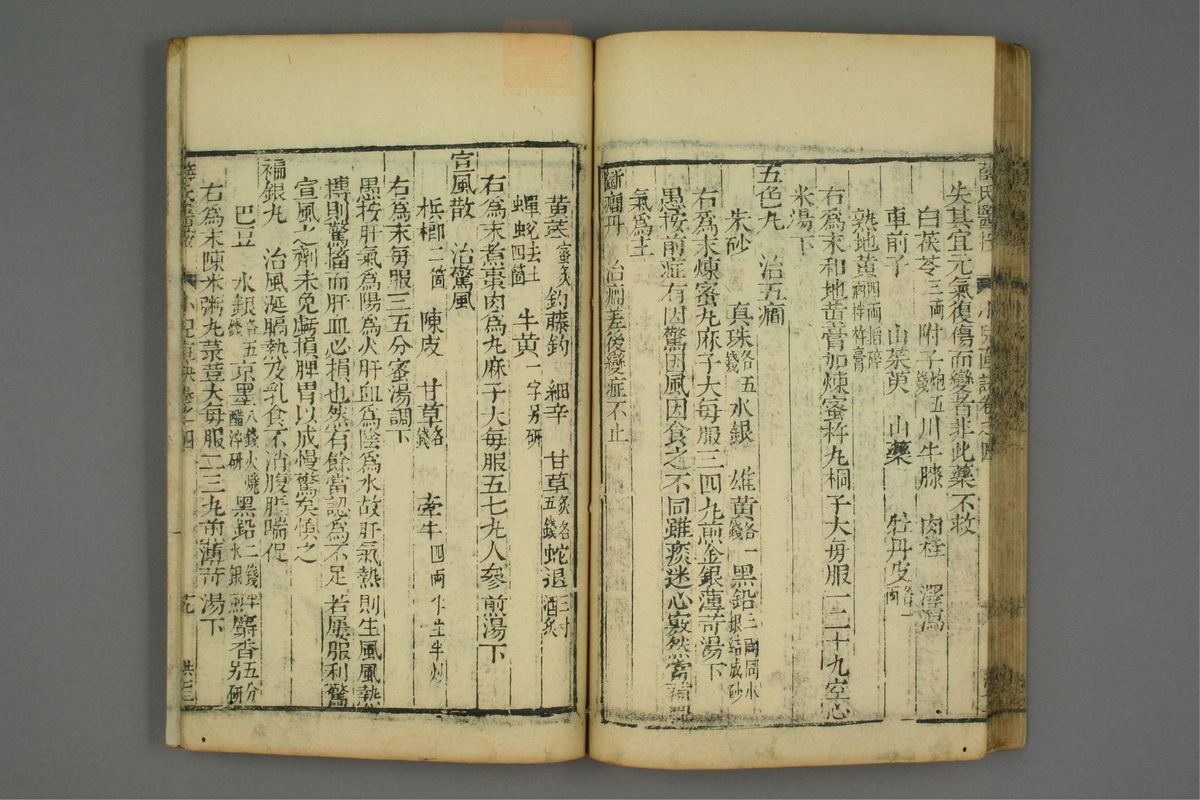 失其宜元氣復傷而變者非此藥不救
白茯苓三兩 附子炮五錢 川牛膝 肉桂 澤瀉
車前子 山茱萸 山藥 牡丹皮各一兩
熟地黃四兩搯碎酒拌杵膏
右爲末和地黃膏加煉蜜杵丸桐子大每服一二十丸空心
米湯下
五色丸 治五癎
朱砂 真珠各五錢 水銀 雄黃各一錢 黑鉛三兩同水銀結成砂
右爲末煉蜜丸麻子大每服三四丸煎金銀薄荷湯下
愚按前症有因驚因風因食之不同雖痰迷心竅然當補
氣爲主
斷癎丹 治癎差後變症不止
黃芪蜜炙 釣藤鈎 細辛 甘草炙各五錢 蛇退三寸酒炙
蟬蛻去土四箇 牛黃一字另研
右爲末煮棗肉爲丸麻子大每服五七丸人參煎湯下
宣風散 治驚風
梹榔二箇 陳皮 甘草各錢 牽牛四兩半生半炒
右爲末每服三五分蜜湯調下
愚按肝氣爲陽爲火肝血爲陰爲水故肝氣熱則生風風熱
愽則驚搐而肝血必損也然有餘當認爲不足若屢服利驚
宣風之劑未免虧損脾胃以成慢驚矣慎之
褊銀丸 治風涎膈熱及乳食不消腹脹喘促
巴豆 水銀各五錢 京墨八錢火燒醋淬研 黑鉛二錢半水銀煎 麝香五分另研
右爲末陳米粥丸菉荳大每服二三丸煎薄荷湯下